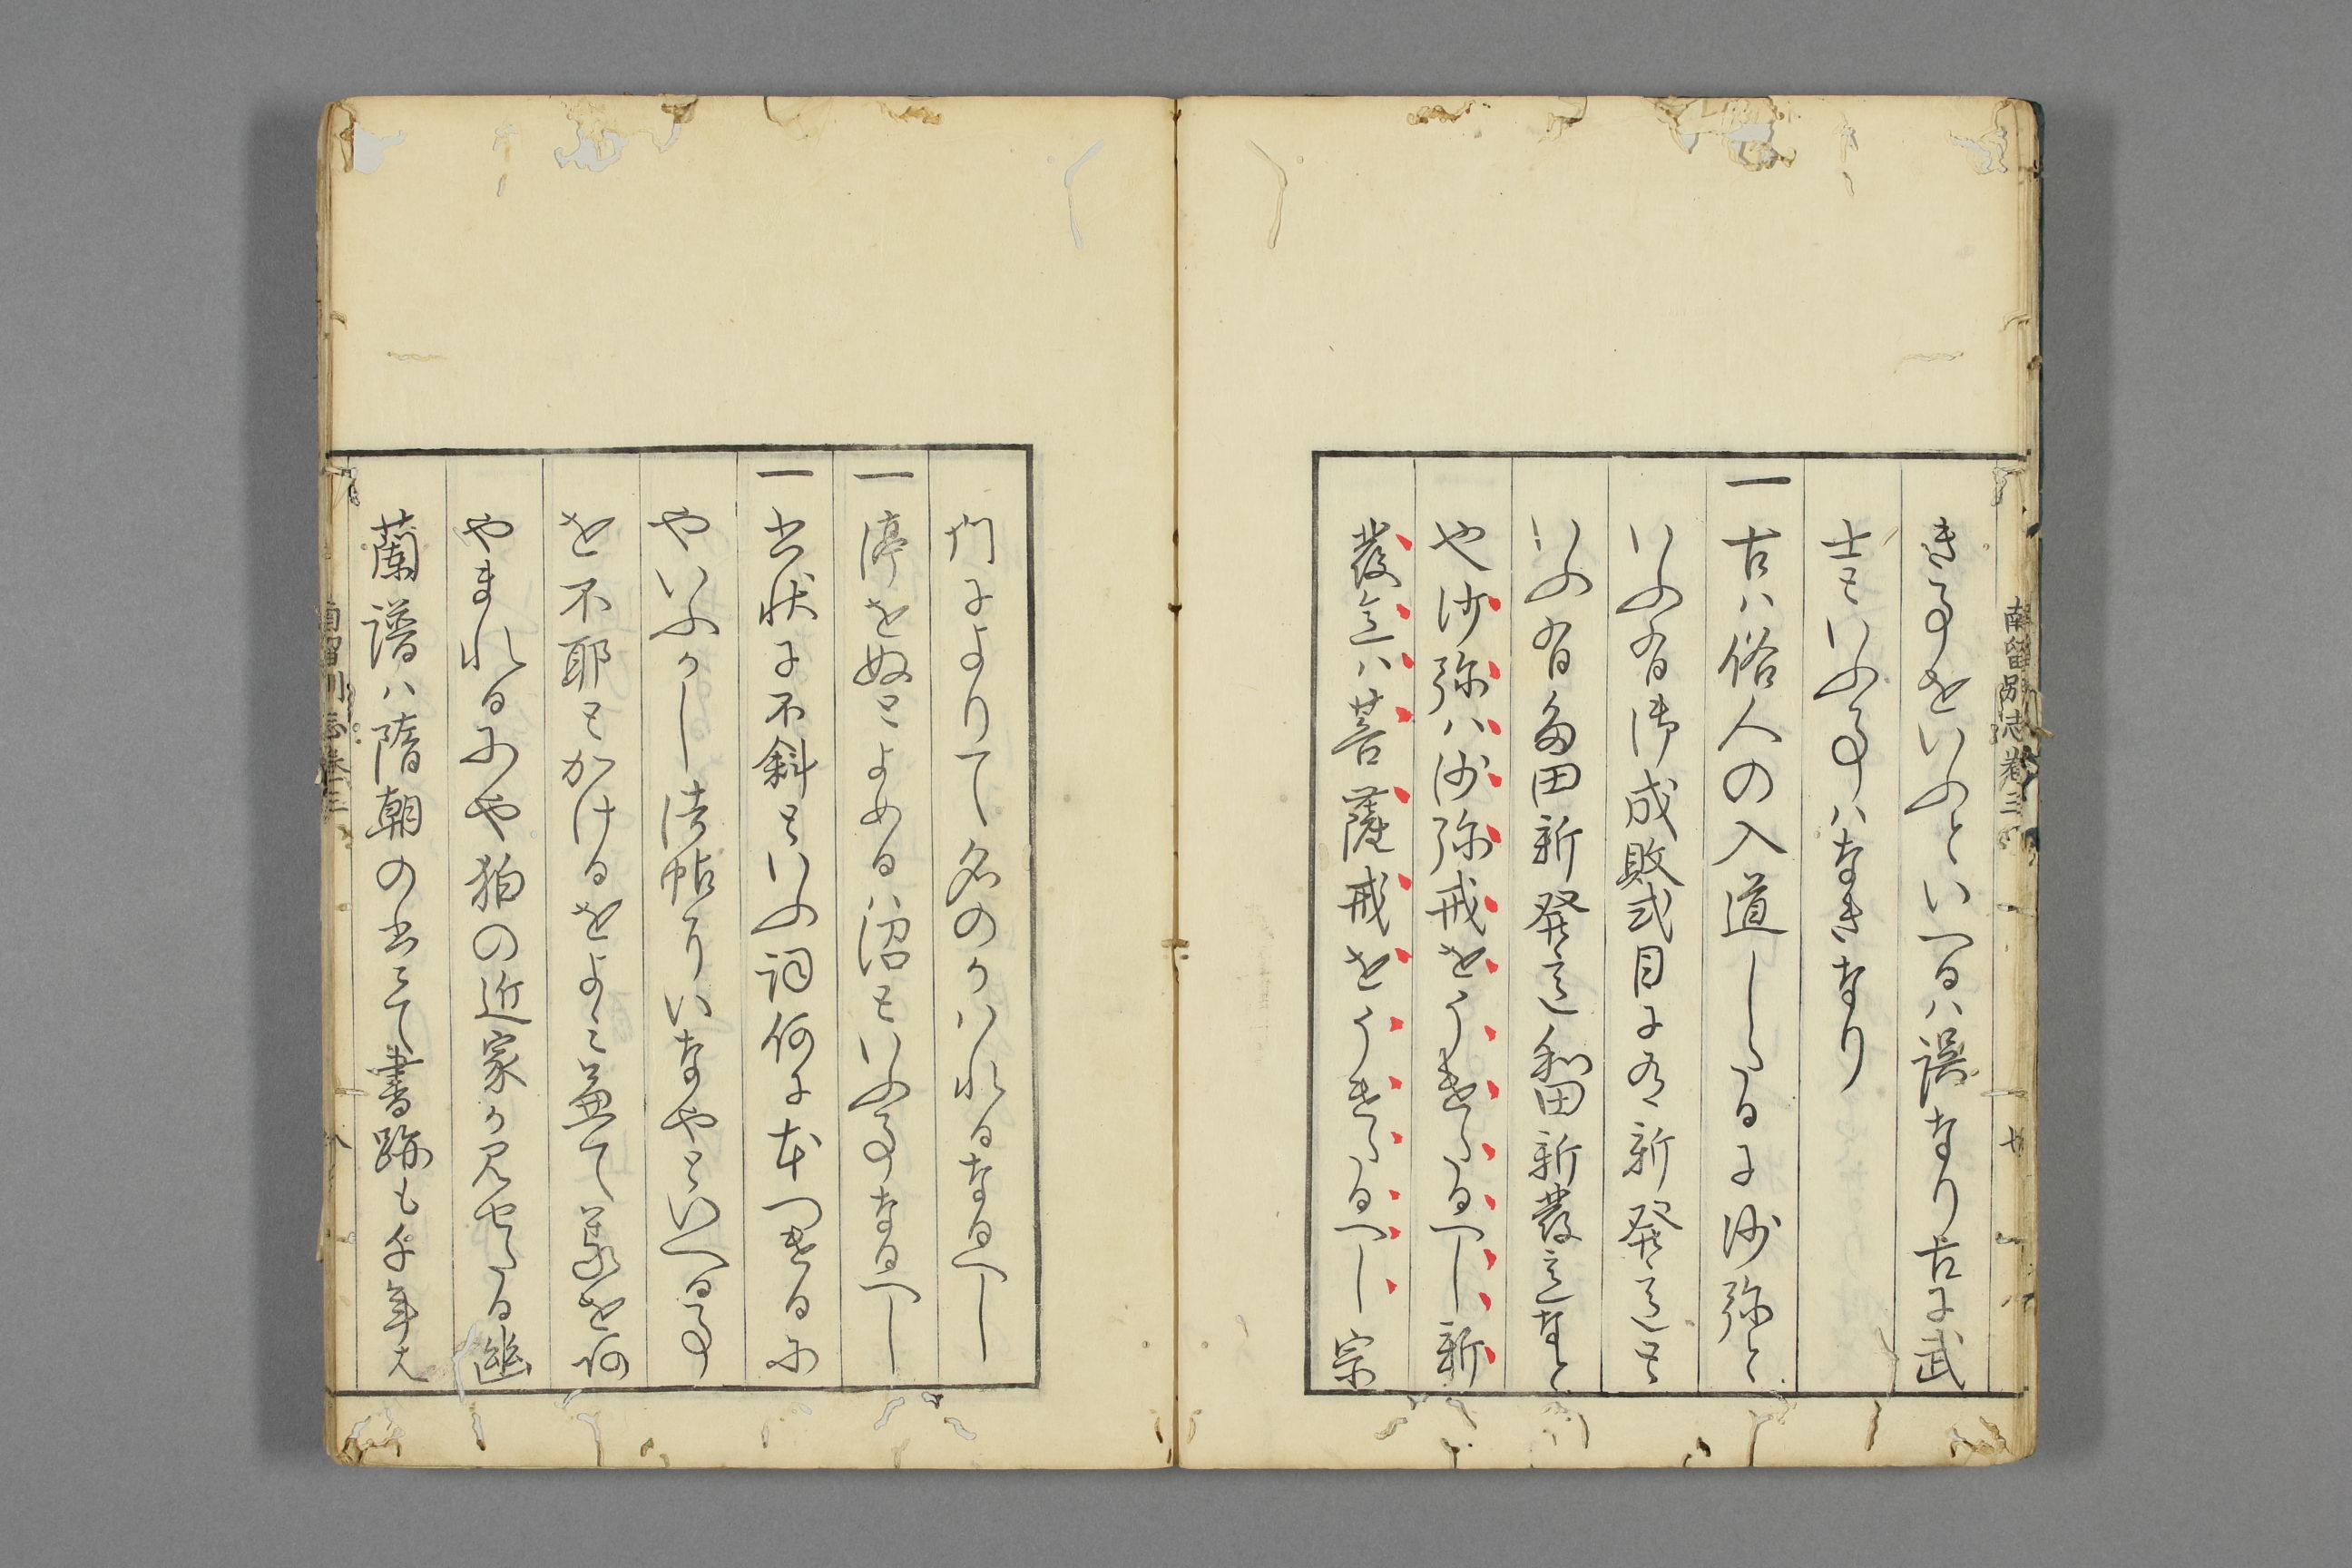 きる事をいふといへるハ誤なり古に武
士といふ事ハなきなり
一古ハ俗人の入道したるに沙弥と
いふ有御成敗式目に有新発意と
いふ有多田新発意和田新發意なと
や沙弥ハ沙弥戒をうけたるへし新
發意ハ菩薩戒をうけたるへし宗
門によりて名のかはれるなるへし
一渟をぬとよめるハ沼といふ事なるへし
一書状に不斜といふ詞何に本つけるに
やいふかし法帖にいなやといへる事
を不耶とかけるをよミ兼て義を
やまれるにや狛の近家か見せたる幽
蘭譜ハ隋朝の書にて書跡も千年は
南留別志巻三